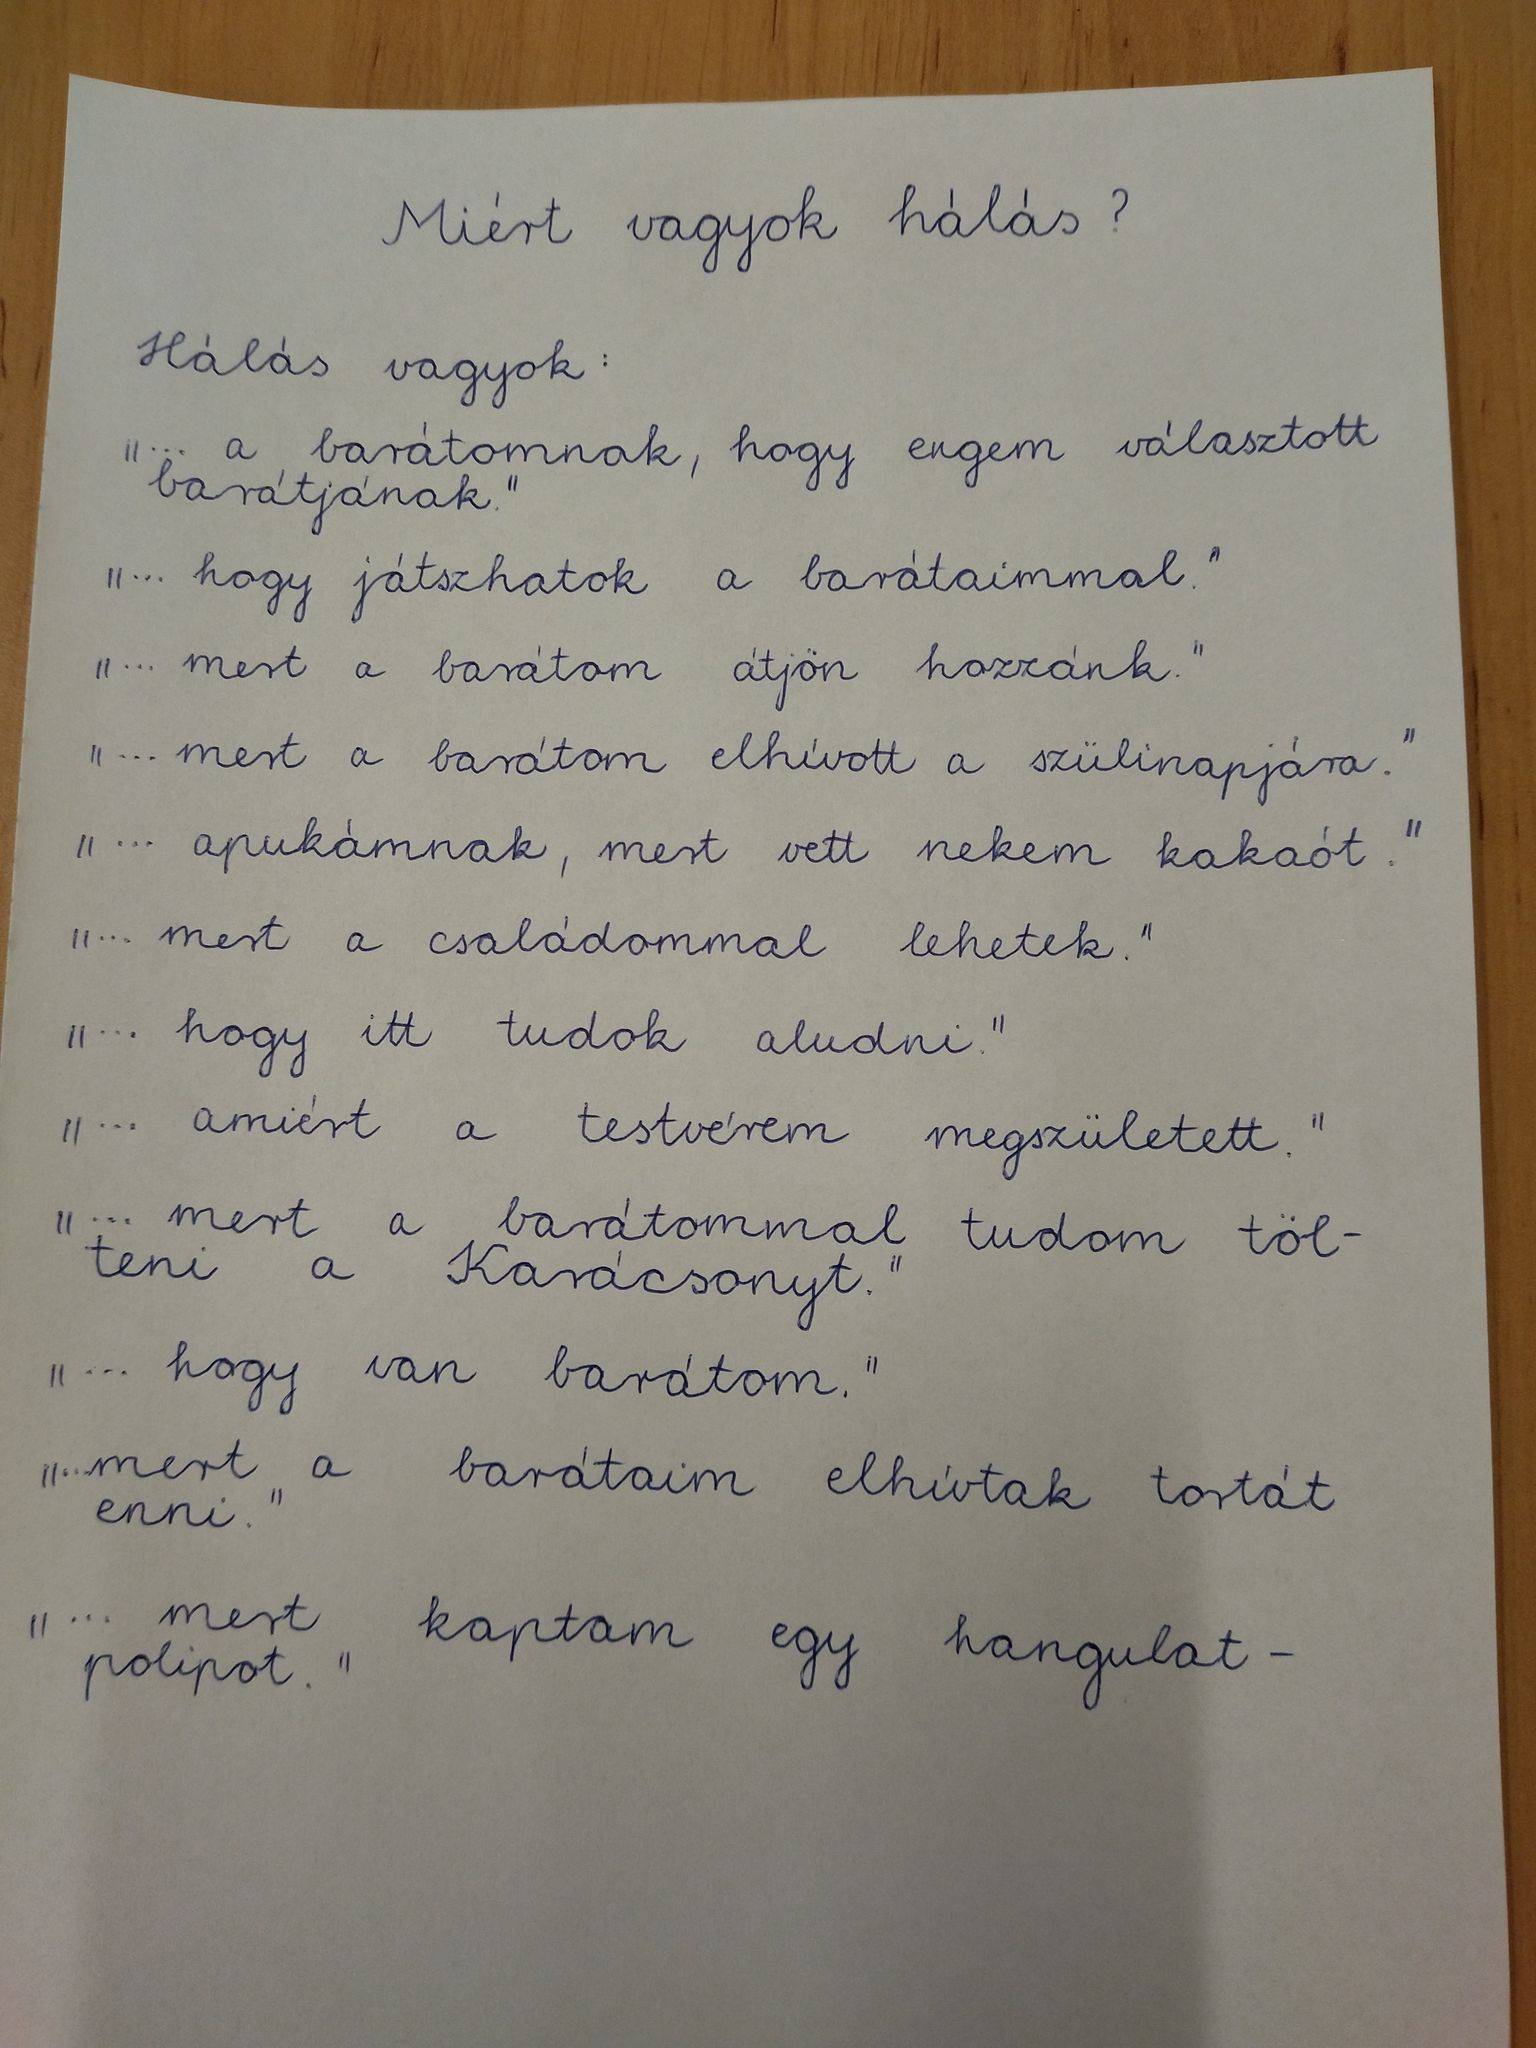 Miért vagyok hálás?
Hálás vagyok:
"... a barátomnak, hogy engem választott
barátjának."
"... hogy játszhatok a barátaimmal."
"... mert a barátom átjön hozzánk."
"... mert a barátom elhívott a szülinapjára."
"... apukámnak, mert vett nekem kakaót."
"... mert a családommal lehetek."
"... hogy itt tudok aludni."
"... amiért a testvérem megszületett."
"... mert a barátommal tudom töl-
teni a Karácsonyt."
"... hogy van barátom."
"...mert a barátaim elhívtak tortát
enni."
"... mert kaptam egy hangulat-
polipot."